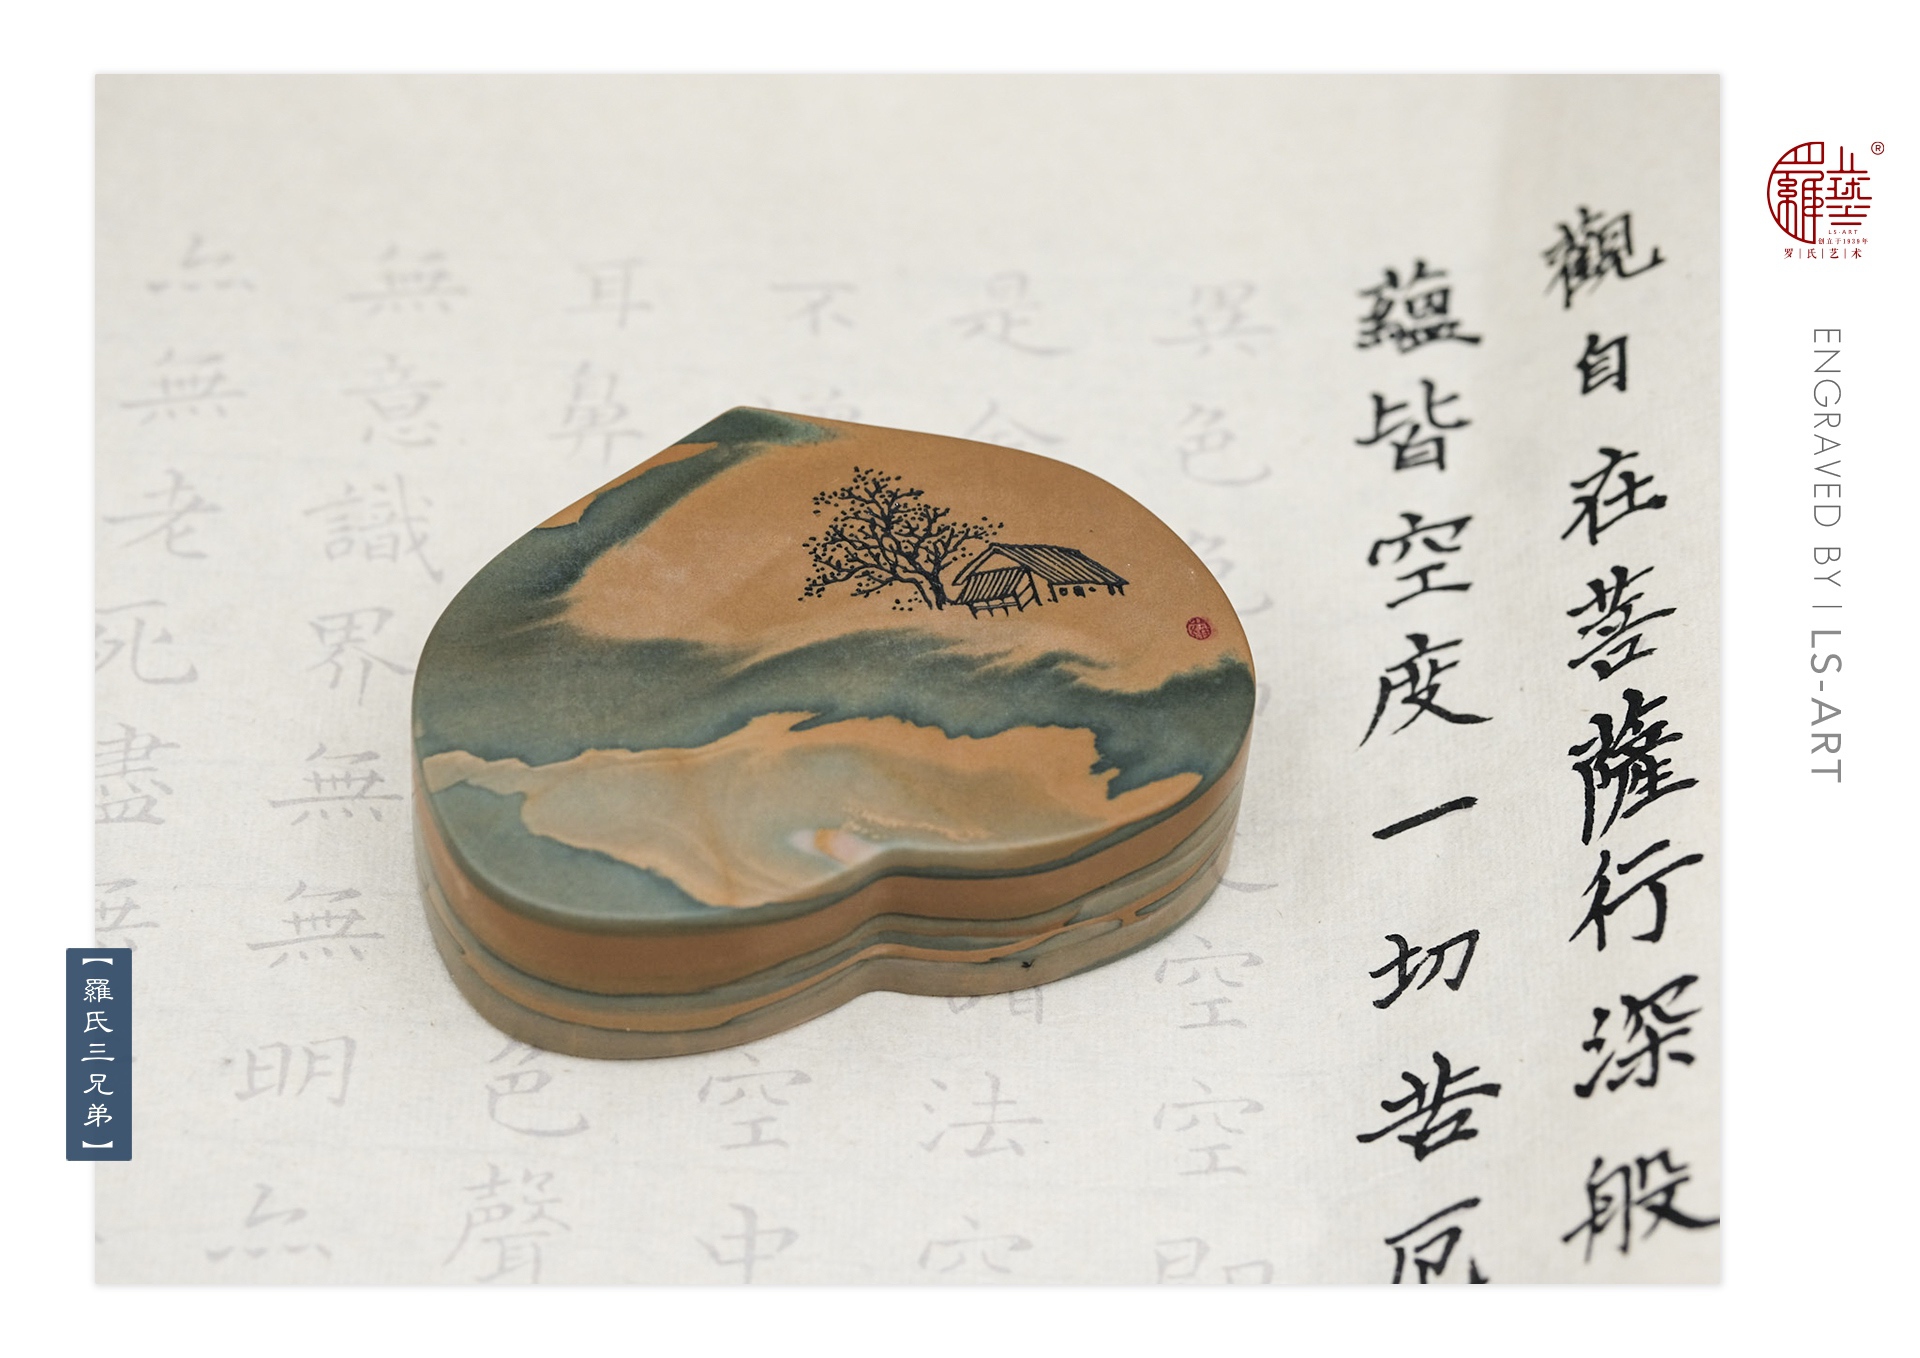 觀自在菩薩行深般
蘊皆空度一切苦厄
異色
空空即
是舍
法空
不
空中
耳鼻
色聲
無意識界無無明
無老死盡
®
LS-ART
创立于1939年
罗|氏|艺|术
ENGRAVED BY | LS-ART
【羅氏三兄弟】